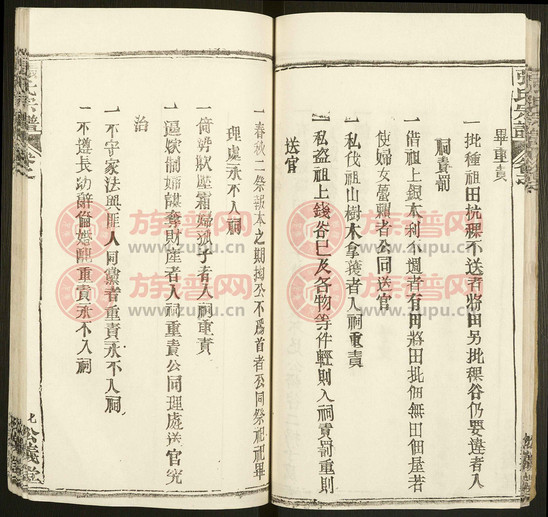 畢重責
一批種祖田抗稞不送者將田另批稞谷仍要違者入
祠責罰
一借祖上銀本利不週者有田將田批佃無田佃屋若
使婦女蔓賴者公同送官
一私伐祖山樹木拿獲者入祠重責
一私盗祖上錢谷巳及各物等件輕則入祠責罰重則
送官
一春秋二祭報本之期拗公不爲首者公同祭祀祀畢
理處永不入祠
一倚勢欺壓霜婦孤子者入祠重責
一逼嫁制婦奪財産者入祠重責公同理處送官究
治
一不守家法與匪人同黨者重責永不入祠
一不遵長幼辭倫婚重責永不入祠
張氏宗譜
公議堂
族譜网
www.zupu.cn
族譜网
www.zupu.cn
族譜网
www.zupu.cn
族譜网
www.zupu.cn